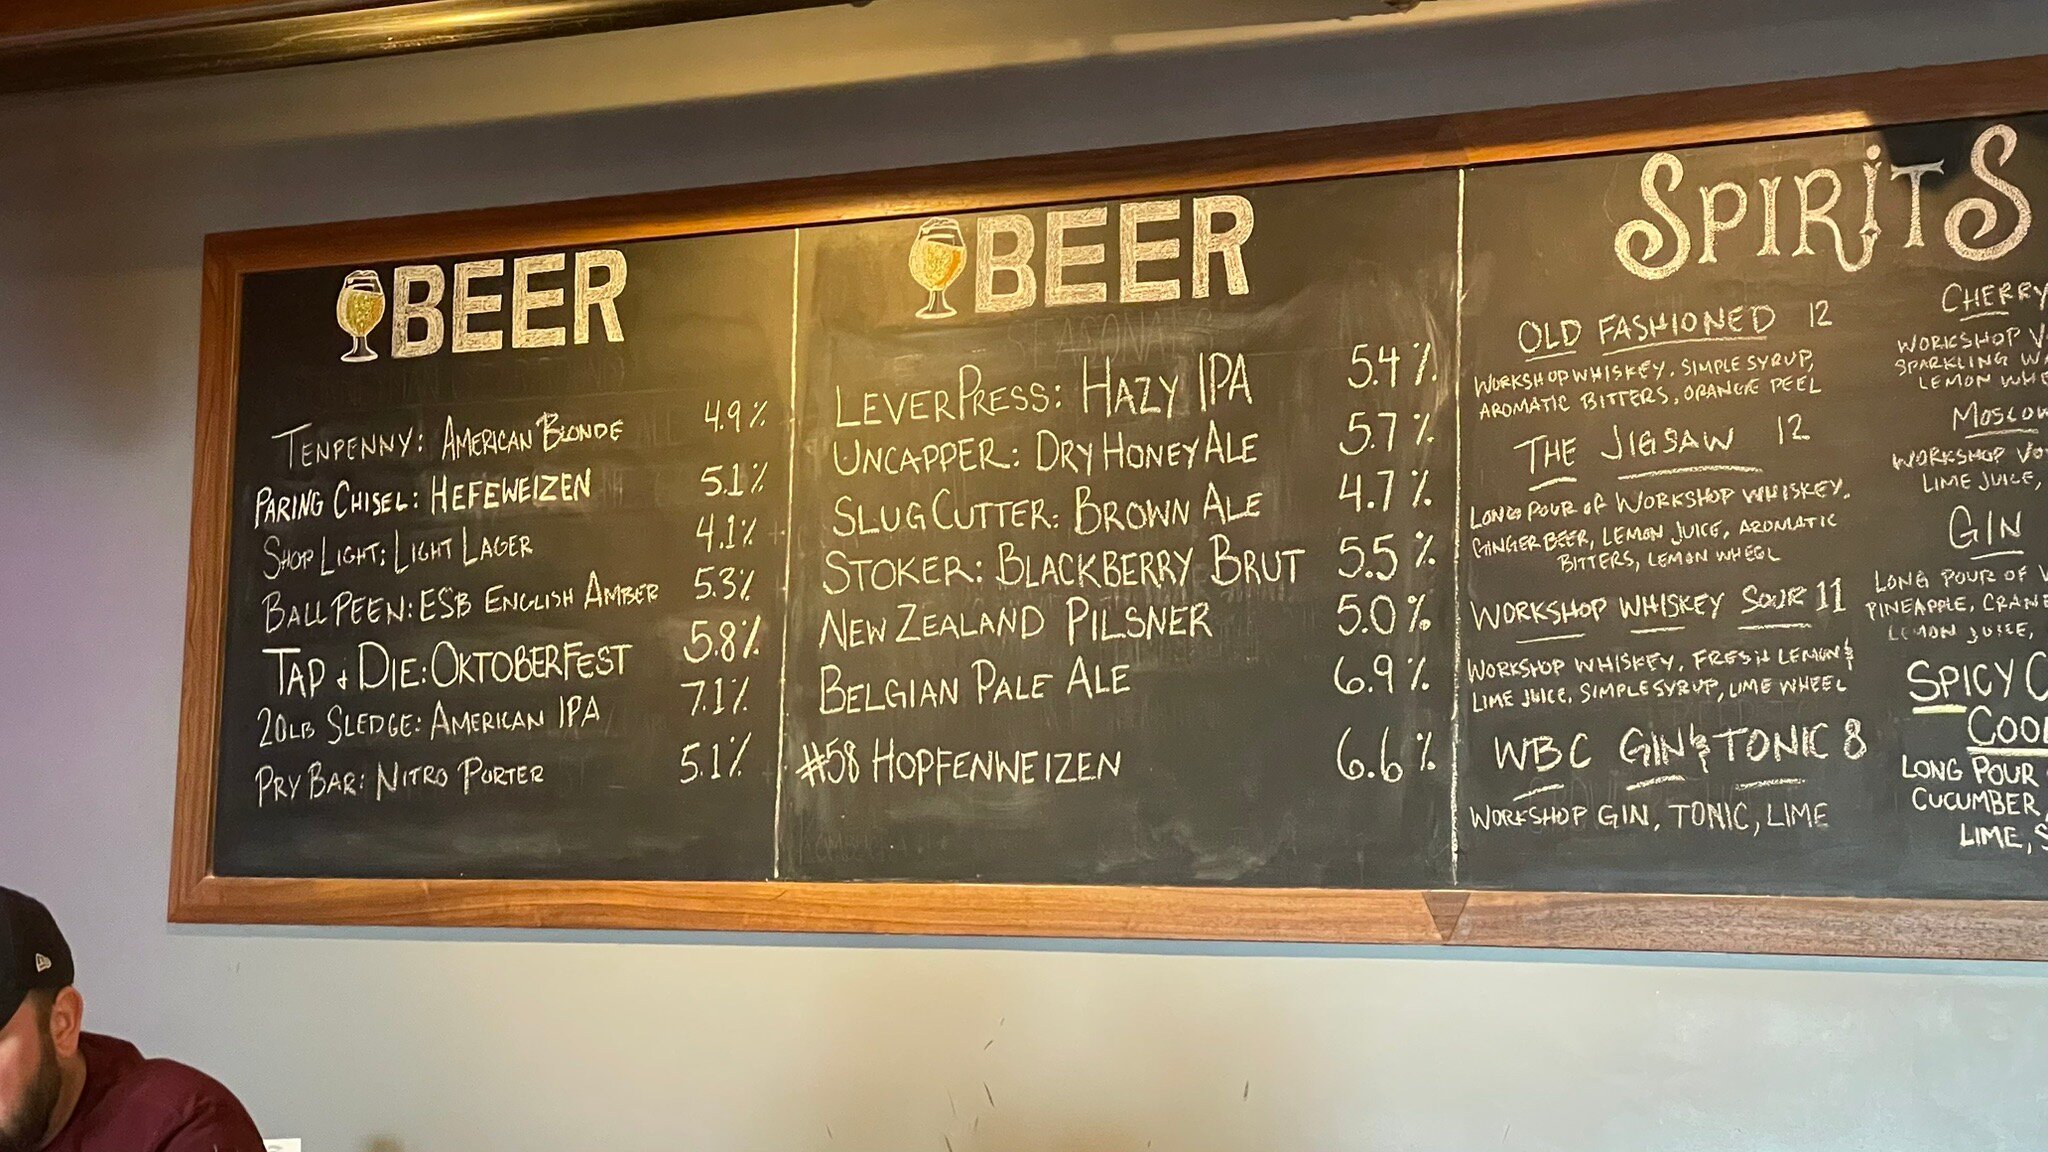 BEER
TENPENNY: AMERICAN BLONDE 4.9%
PARING CHISEL: HEFEWEIZEN 5.1%
SHOP LIGHT: LIGHT LAGER 4.1%
BALL PEEN: ESB ENGLISH AMBER 5.3%
TAP & DIE: OKTOBERFEST 5.8%
20LB SLEDGE: AMERICAN IPA 7.1%
PRY BAR: NITRO PORTER 5.1%
BEER
SEASONALS
LEVERPRESS: HAZY IPA 5.4%
UNCAPPER: DRY HONEY ALE 5.7%
SLUG CUTTER: BROWN ALE 4.7%
STOKER: BLACKBERRY BRUT 5.5%
NEW ZEALAND PILSNER 5.0%
BELGIAN PALE ALE 6.9%
#58 HOPFENWEIZEN 6.6%
SPIRITS
OLD FASHIONED 12
WORKSHOP WHISKEY, SIMPLE SYRUP,
AROMATIC BITTERS, ORANGE PEEL
THE JIGSAW 12
LONG POUR OF WORKSHOP WHISKEY,
GINGER BEER, LEMON JUICE, AROMATIC
BITTERS, LEMON WHEEL
WORKSHOP WHISKEY SOUR 11
WORKSHOP WHISKEY, FRESH LEMON &
LIME JUICE, SIMPLE SYRUP, LIME WHEEL
WBC GIN & TONIC 8
WORKSHOP GIN, TONIC, LIME
CHERRY
WORKSHOP
SPARKLING
LEMON
WORKSHOP
LIME JUICE,
GIN
LONG POUR OF
PINEAPPLE,
LEMON JUICE,
SPICY
LONG POUR
CUCUMBER,
LIME,